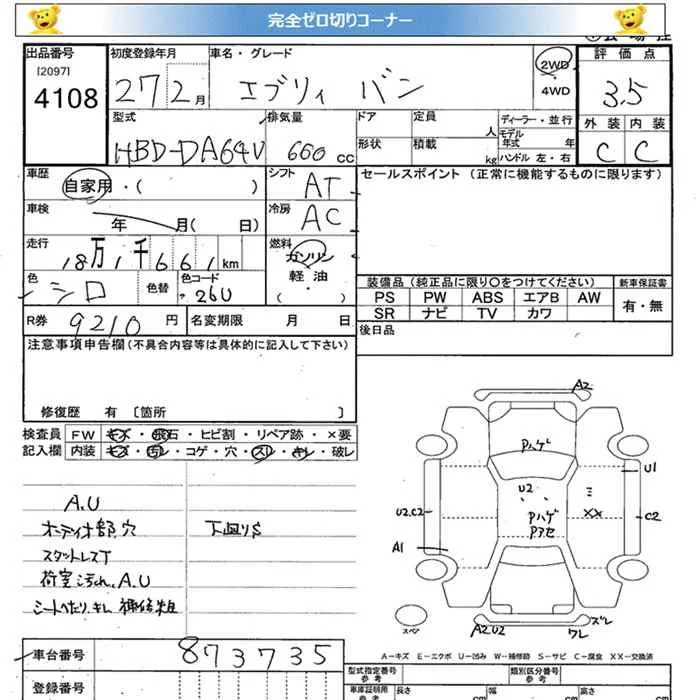 完全ゼロ切りコーナー
出品番号
[2097]
4108
初度登録年月
27年2月
車名・グレード
エブリィ バン
2WD
4WD
評価点
3.5
外装 内装
C C
型式
HBD-DA64V
排気量
660 cc
ドア
形状
定員 人
積載 kg
ディーラー・並行
モデル年式 年
ハンドル 左・右
車歴
自家用・( )
シフト
AT
セールスポイント (正常に機能するものに限ります)
車検
年 月( 日)
冷房
AC
走行
18万1千661km
燃料
ガソリン
軽・油
( )
色
シロ
色替
色コード
26U
装備品 (純正品に限り〇をつけてください)
新車保証書
PS PW ABS エアB AW
SR ナビ TV カワ
有・無
R券 9210 円
名変期限 月 日
後日品
注意事項申告欄(不具合内容等は具体的に記入して下さい)
修復歴 有 [箇所 ]
検査員記入欄
FW キズ・飛石・ヒビ割・リペア跡・×要
内装 キズ・汚レ・コゲ・穴・スレ・キレ・破レ
A.U
オーディオ部穴
スタットレスT
荷室汚れ、A.U
シートへたり、キレ 補修粗
下廻りS
A2
Pハゲ
U1
U2
U2.C2
XX
C2
Pハゲ
Pアセ
A1
スペア
A2U2
ズレ
ワレ
A-キズ E-エクボ U-凹み W-補修跡 S-サビ C-腐食 XX-交換済
車台番号
873735
登録番号
型式指定番号
参考
類別区分番号
参考
車庫証明用
参考
長さ cm
幅 cm